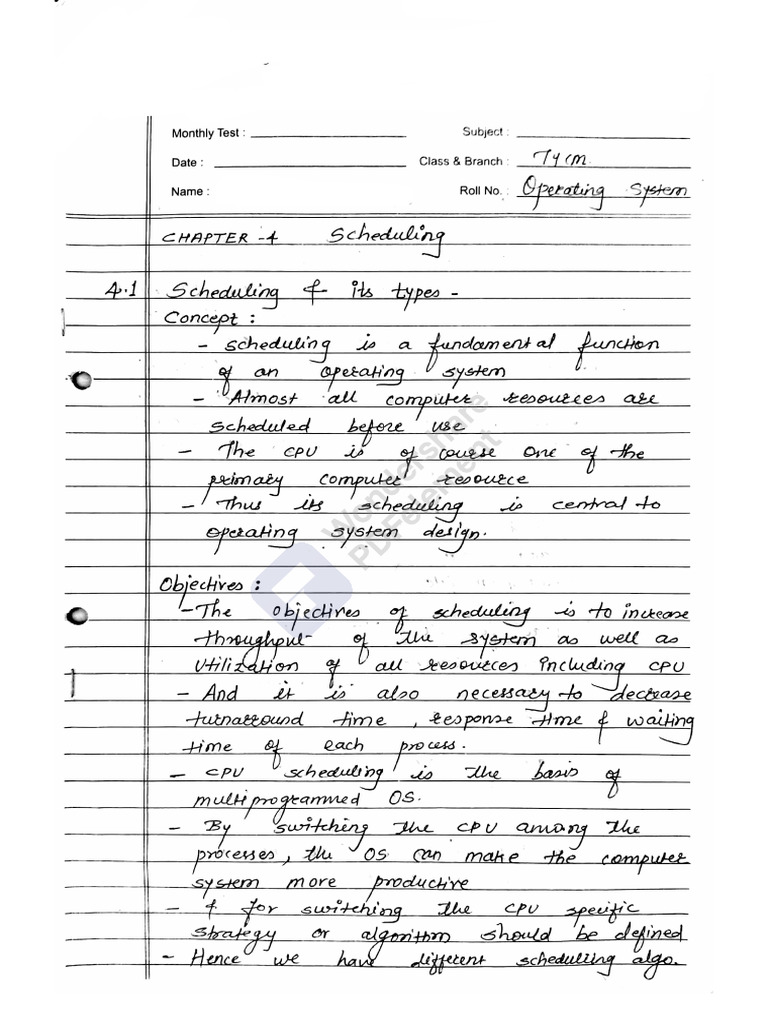 Monthly Test : Subject :
Date : Class & Branch : TyCM.
Name : Roll No. : Operating System
CHAPTER -4 Scheduling
4.1 Scheduling & its types -
Concept :
- scheduling is a fundamental function
of an operating system
- Almost all computer resources are
scheduled before use
- The CPU is of course one of the
primary computer resource
- Thus its scheduling is central to
operating system design.
Objectives :
- The objectives of scheduling is to increase
throughput of the system as well as
utilization of all resources including CPU
- And it is also necessary to decrease
turnarround time , response time & waiting
time of each process.
- CPU scheduling is the basis of
multiprogrammed OS.
- By switching the CPU among the
processes, the OS can make the computer
system more productive
- & for switching the CPU specific
strategy or algorithm should be defined
- Hence we have different scheduling algo.
Wondershare
PDFelement